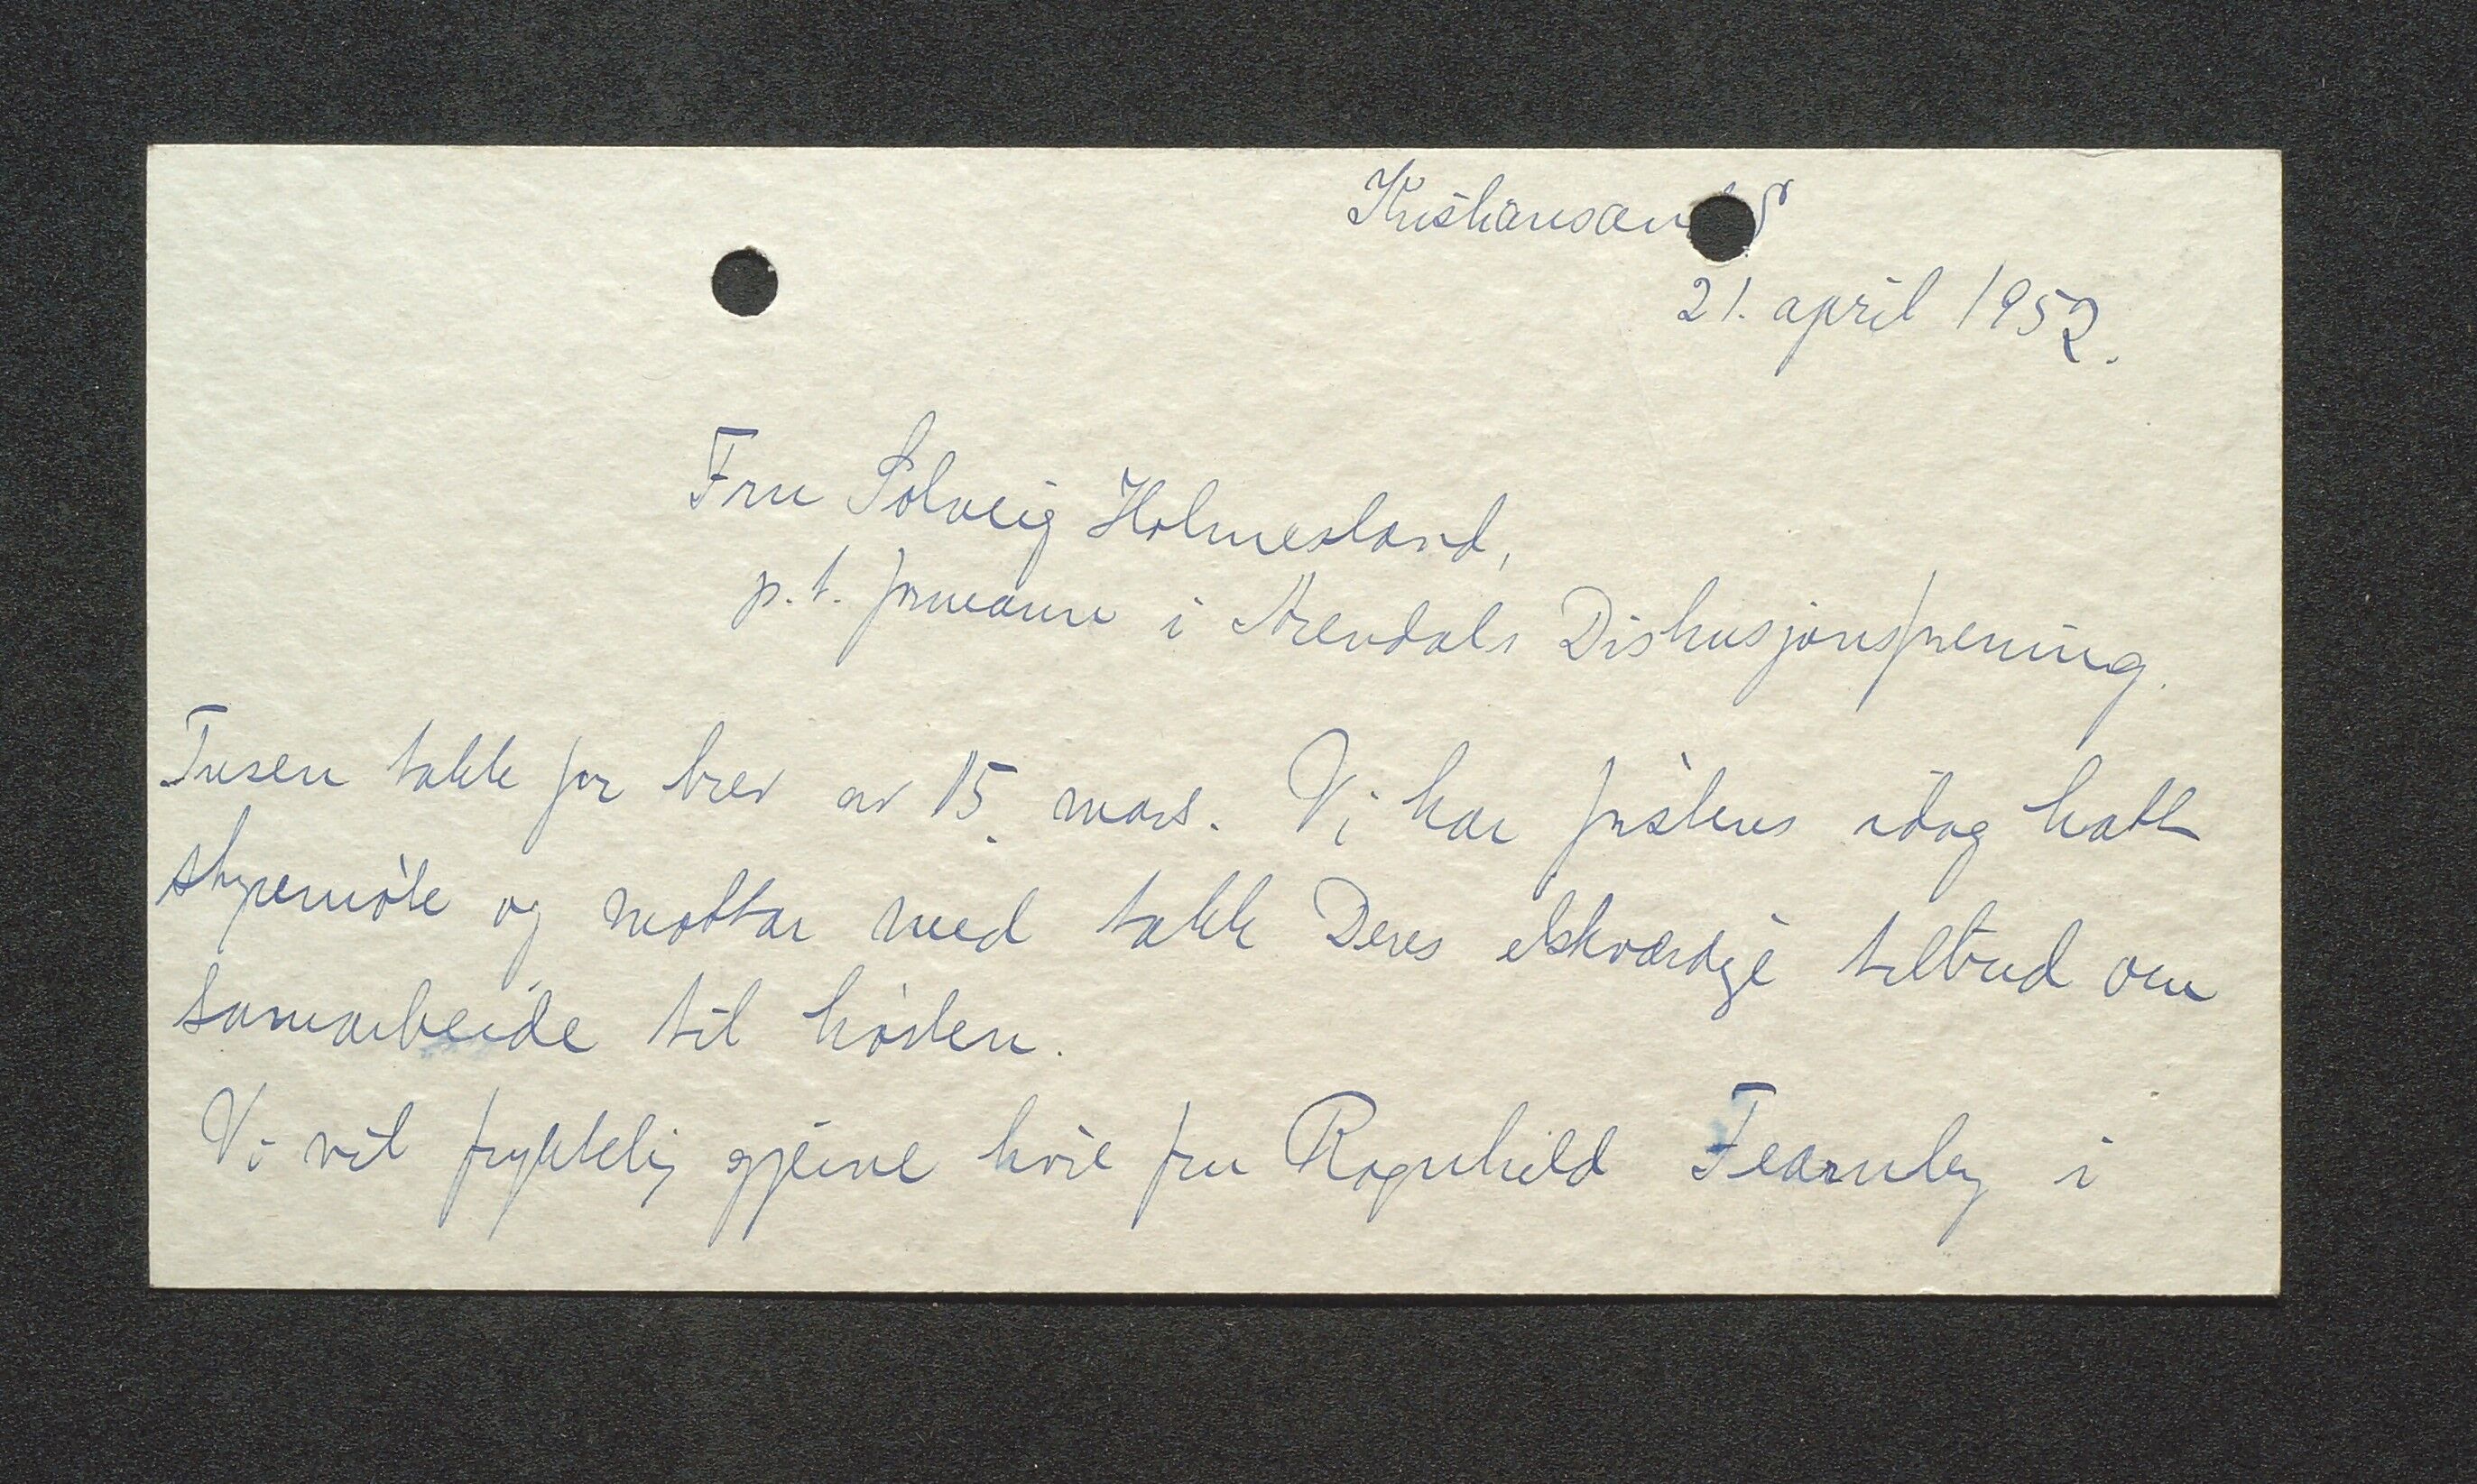 Kristiansand S
21. april 1952.
Fru Solveig Holmesland,
p.t. formann i Arendals Diskusjonsforening.
Tusen takk for brev av 15. mars. Vi har först idag hatt
styremöte og mottar med takk Deres elskverdige tilbud om
samarbeide til hösten.
Vi vil fryktelig gjerne höre fru Ragnhild Fearnley i